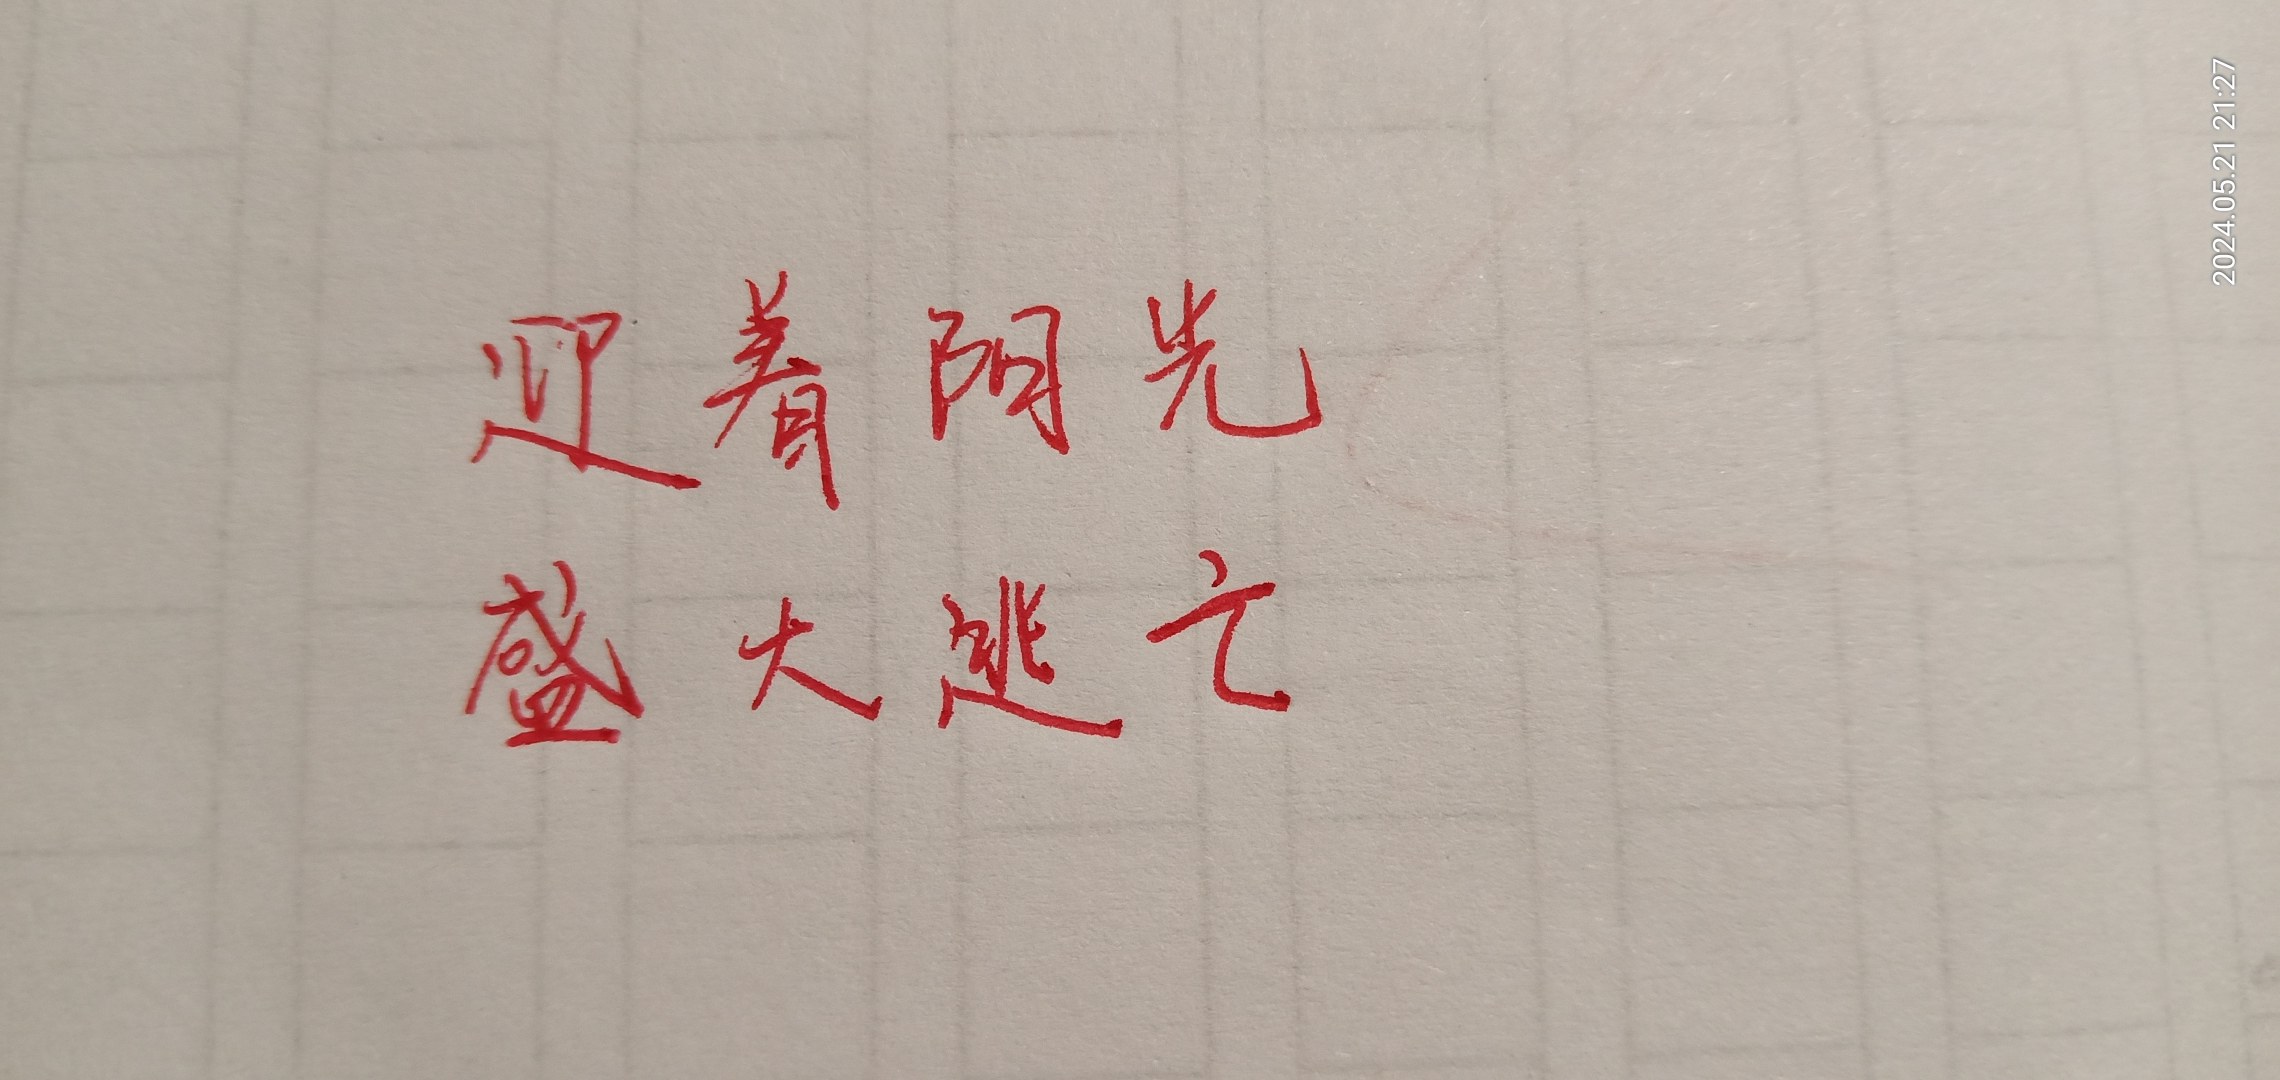 迎着阳光
盛大逃亡
2024.05.21 21:27